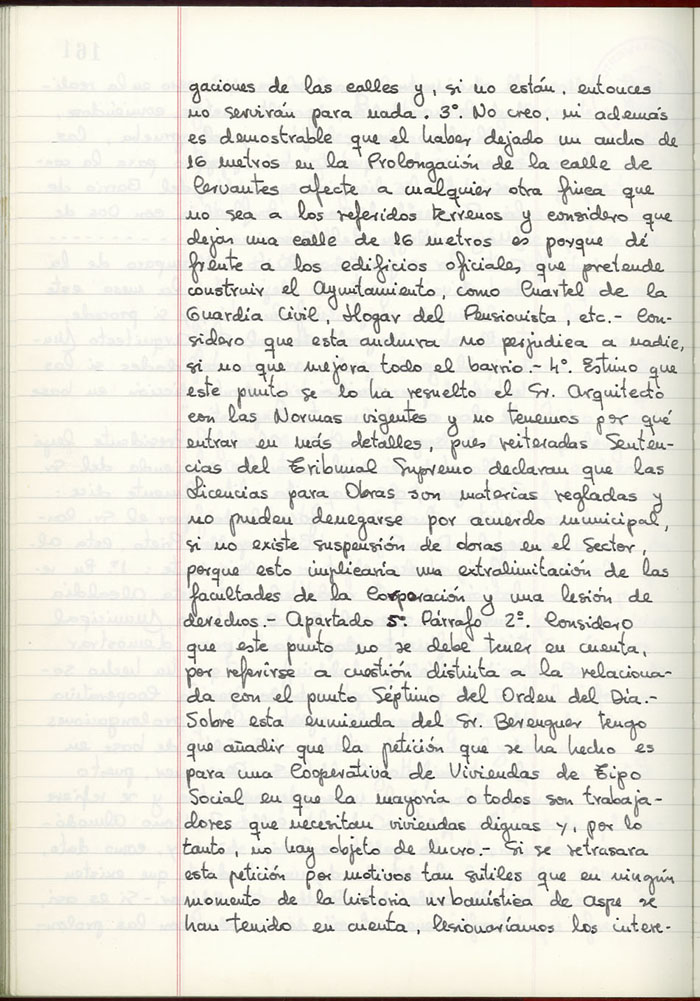 gaciones de las calles y, si no están, entonces
no servirán para nada. 3º. No creo, ni además
es demostrable que el haber dejado un ancho de
16 metros en la Prolongación de la calle de
Cervantes afecte a cualquier otra finca que
no sea a los referidos terrenos y considero que
dejan una calle de 16 metros es porque dé
frente a los edificios oficiales que pretende
construir el Ayuntamiento, como Cuartel de la
Guardia Civil, Hogar del Pensionista, etc.- Con-
sidero que esta anchura no perjudica a nadie,
si no que mejora todo el barrio.- 4º. Estimo que
este punto se lo ha resuelto el Sr. Arquitecto
con las Normas vigentes y no tenemos por qué
entrar en más detalles, pues reiteradas Senten-
cias del Tribunal Supremo declaran que las
Licencias para Obras son materias regladas y
no pueden denegarse por acuerdo municipal,
si no existe suspensión de obras en el Sector,
porque esto implicaría una extralimitación de las
facultades de la Corporación y una lesión de
derechos.- Apartado 5º Párrafo 2º. Considero
que este punto no se debe tener en cuenta,
por referirse a cuestión distinta a la relaciona-
da con el punto Séptimo del Orden del Día.-
Sobre esta enmienda del Sr. Berenguer tengo
que añadir que la petición que se ha hecho es
para una Cooperativa de Viviendas de Tipo
Social en que la mayoría o todos son trabaja-
dores que necesitan viviendas dignas y, por lo
tanto, no hay objeto de lucro.- Si se retrasara
esta petición por motivos tan sutiles que en ningún
momento de la historia urbanística de Aspe se
han tenido en cuenta, lesionaríamos los intere-